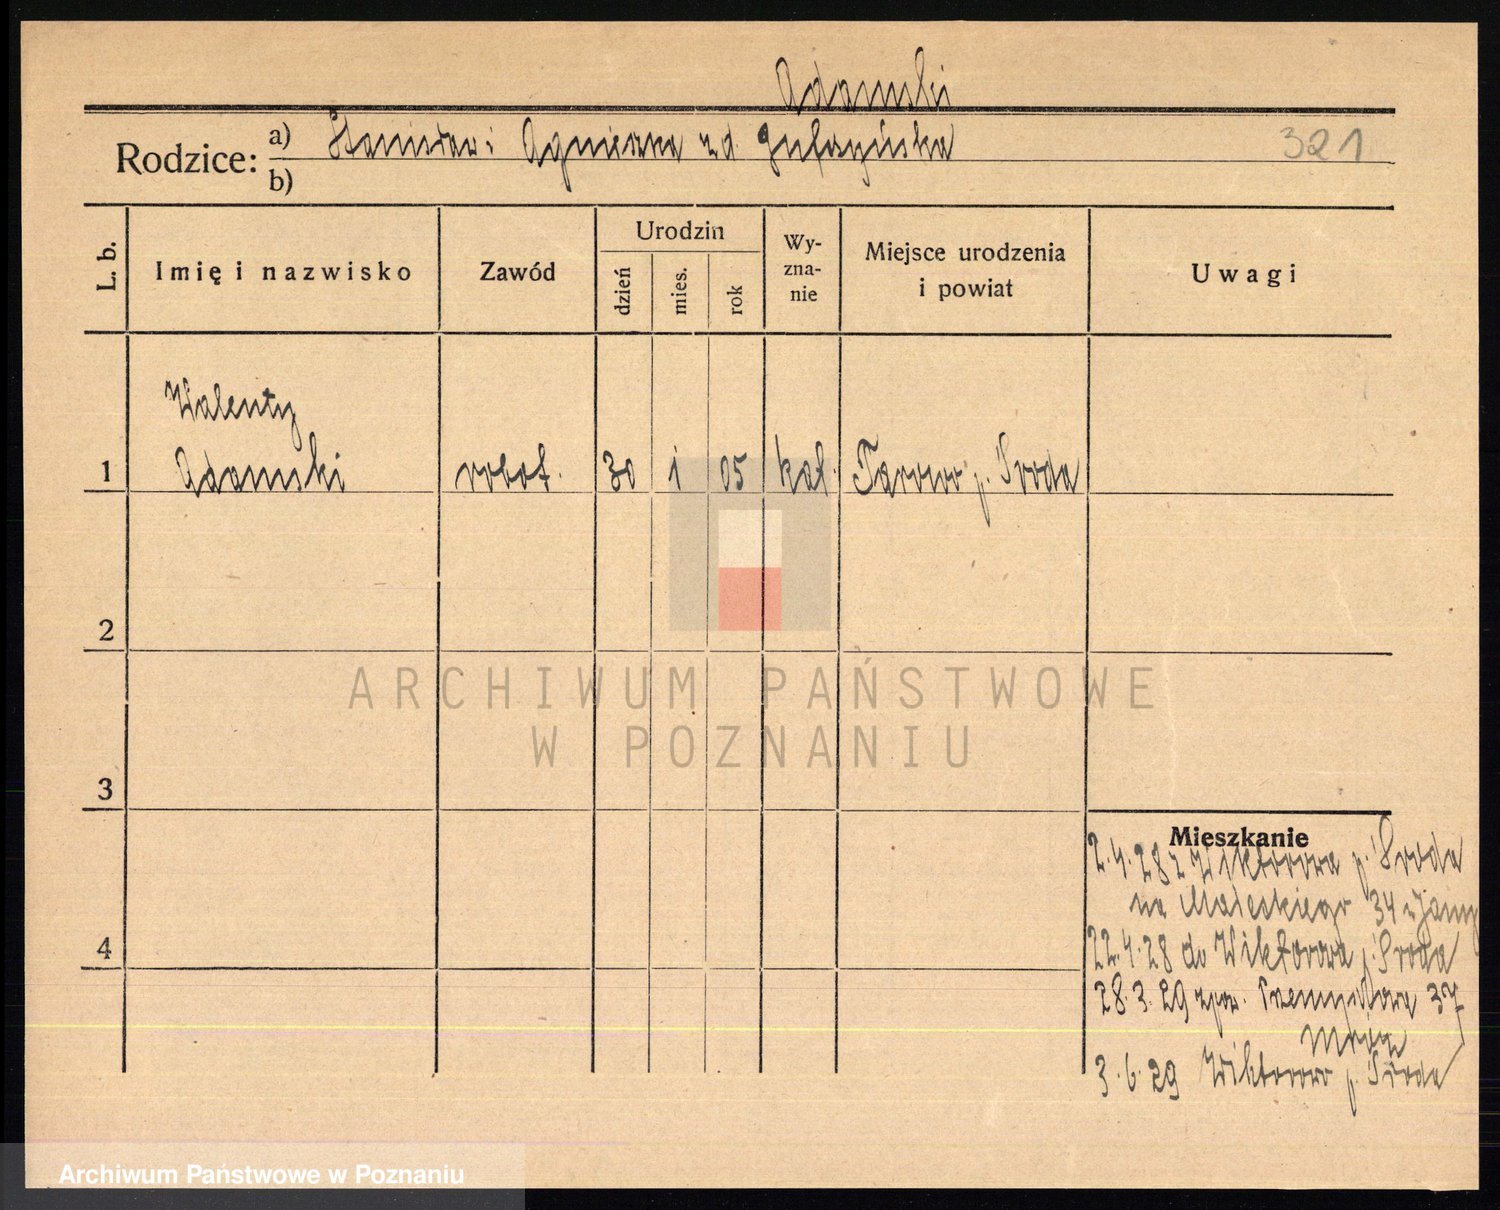 Adamski
Rodzice: a) Stanisław i Agnieszka z d.
b)
321
L. b.
Imię i nazwisko
Zawód
Urodzin
dzień
mies.
rok
Wy-
zna-
nie
Miejsce urodzenia
i powiat
Uwagi
Walenty
1 Adamski robot. 30 1 05 kat. p. Środa
2
3
4
Mieszkanie
2.4.28 z Wiktorowa p. Środa
na 34
22.4.28 do Wiktorowa p. Środa
28.3.29 zpw. Przemysłowa 37
3.6.29 Wiktorowo p. Środa
ARCHIWUM PAŃSTWOWE
W POZNANIU
Archiwum Państwowe w Poznaniu